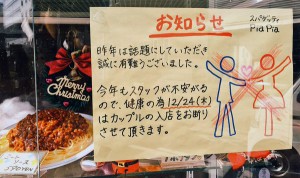 お知らせ
スパゲッティ
PiaPia
昨年は話題にしていただき
誠に有難うございました。
今年もスタッフが不安がる
ので、健康の為12/24(木)
はカップルの入店をお断り
させて頂きます。
Merry
Christmas